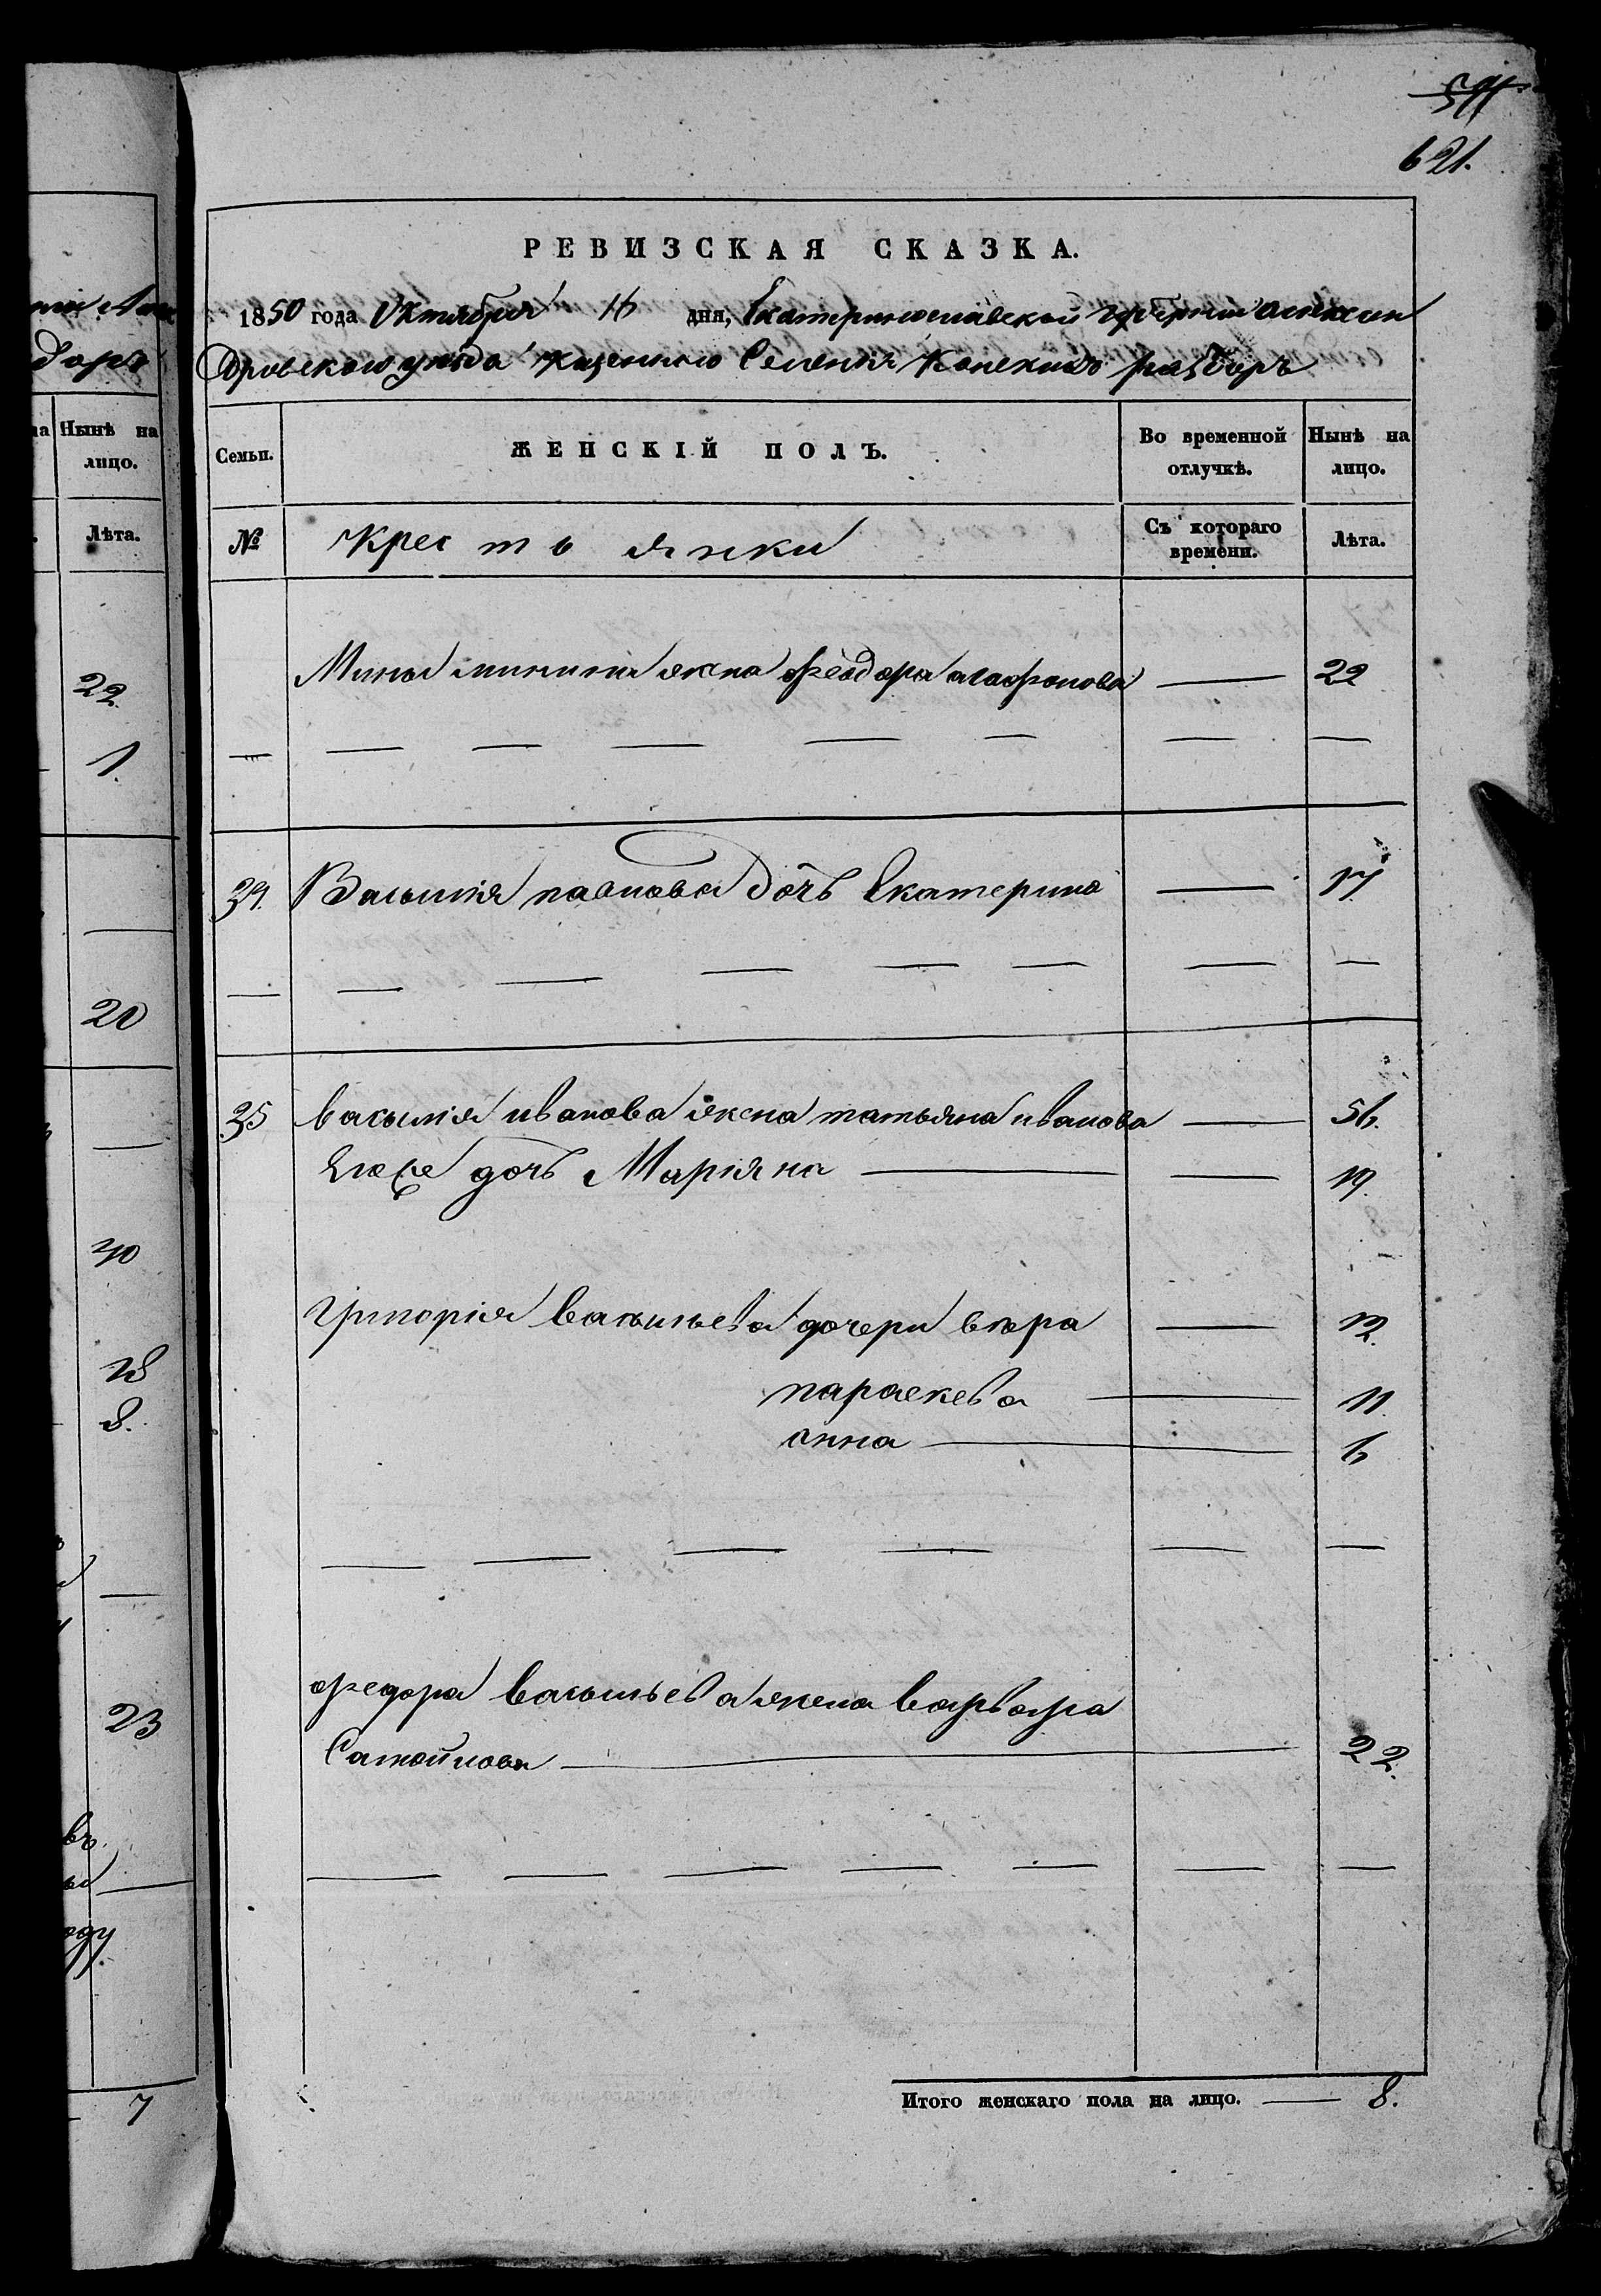 621.
РЕВИЗСКАЯ СКАЗКА.
1850 года Октября 16 дня, Екатеринославской губернии Алексан
дровского уезда казенного Селения Конских раздоръ
Семьи. ЖЕНСКІЙ ПОЛЪ. Во временной отлучкѣ. Нынѣ на лицо.
№ Крестьянки Съ котораго времени. Лѣта.
Мины минина жена феодора агафонова — 22
34. Василія павлова дочь Екатерина — 17.
35 василія иванова жена татьяна иванова — 56.
Егоже дочь Маріяна — 19.
Григорія васильева дочери вѣра — 12.
параскева — 11.
анна — 6
федора васильева жена варвара
Самойлова — 22.
Итого женскаго пола на лицо. — 8.
доръ
Нынѣ на
лицо.
Лѣта.
22.
1.
20
40
18
8.
23
въ
оду
7